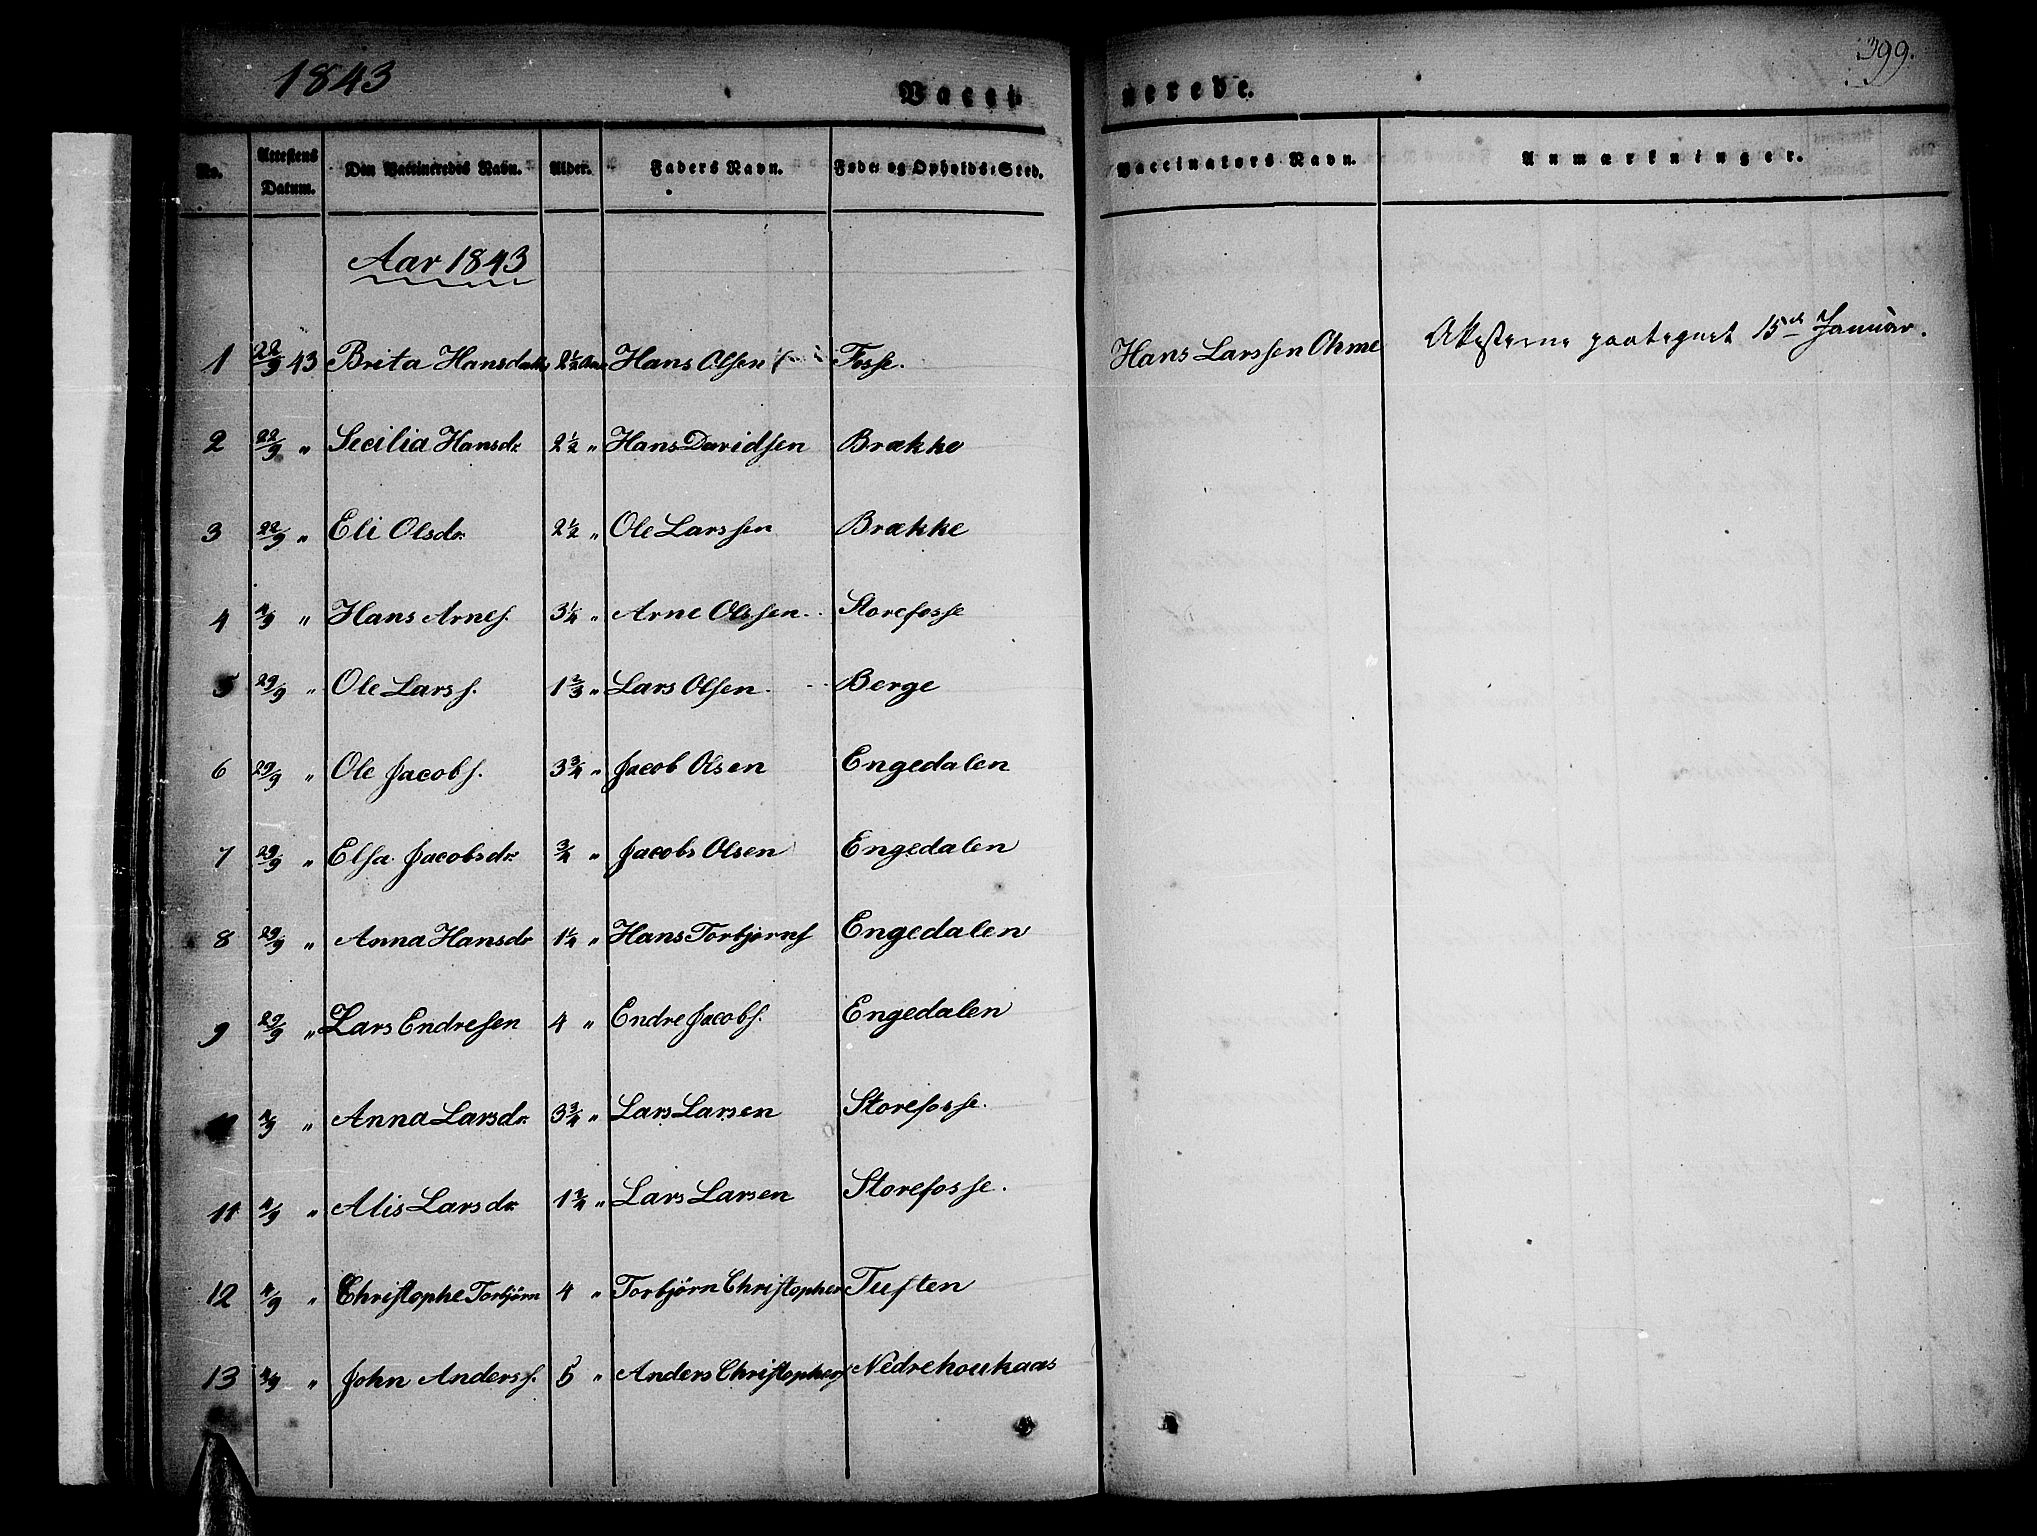 1843 Vacci nerede. 399.
No. Attestens Datum. Den Vaccineredes Navn. Alder. Faders Navn. Føde- og Opholds-Sted. Vaccinators Navn. Anmærkninger.
Aar 1843
1 22/9 43 Brita Hansdatter 2 1/2 Aar Hans Olsen Fosse. Hans Larssen Ohme Attesterne paategnet 15de Januar.
2 22/9 " Secilia Hansdr. 2 1/2 " Hans Davidsen Brække
3 22/9 " Eli Olsdr. 2 1/2 " Ole Larssen Brække
4 4/9 " Hans Arnes. 3 1/4 " Arne Olssen Storefosse
5 29/9 " Ole Larss. 1 2/3 " Lars Olsen Berge
6 29/9 " Ole Jacobs. 3 3/4 " Jacob Olsen Engedalen
7 29/9 " Elsa Jacobsdr. 3/4 " Jacobs Olsen Engedalen
8 29/9 " Anna Hansdr 1 1/4 " Hans Torbjørns Engedalen
9 29/9 " Lars Endresen 4 " Endre Jacobs. Engedalen
4/9 " Anna Larsdr. 3 3/4 " Lars Larsen Storefosse.
11 4/9 " Alis Larsdr. 1 3/4 " Lars Larsen Storefosse.
12 4/9 " Christophe Torbjørn 4 " Torbjørn Christophers Tuften
13 4/9 " John Anderss. 5 " Anders Christophers Nedrehoukaas